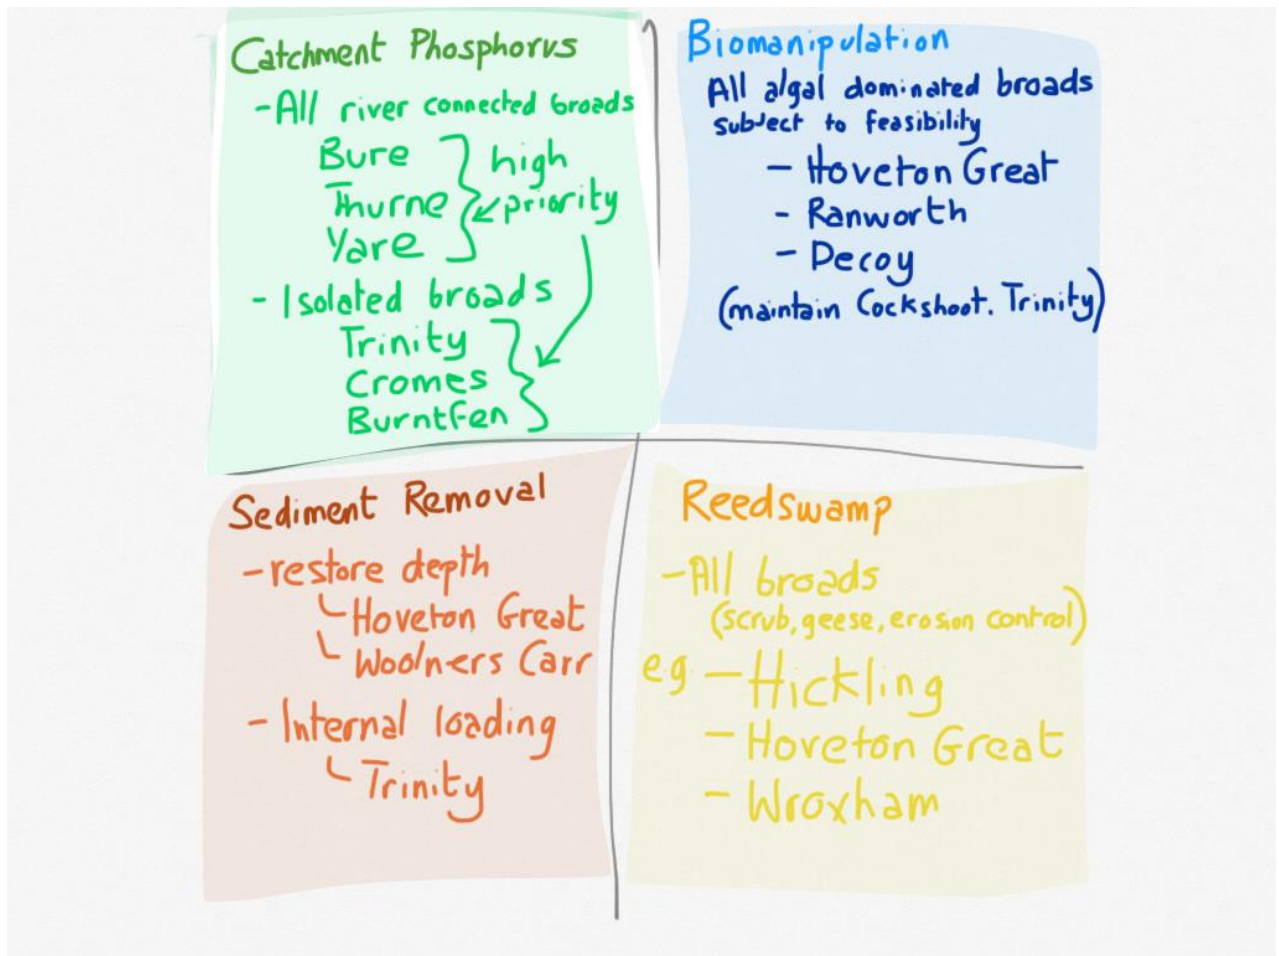 Catchment Phosphorus
- All river connected broads
Bure
Thurne
Yare
high
priority
- Isolated broads
Trinity
Cromes
Burntfen
Biomanipulation
All algal dominated broads
subject to feasibility
- Hoveton Great
- Ranworth
- Decoy
(maintain Cockshoot. Trinity)
Sediment Removal
- restore depth
Hoveton Great
Woolners Carr
- Internal loading
Trinity
Reedswamp
- All broads
(scrub, geese, erosion control)
e.g - Hickling
- Hoveton Great
- Wroxham